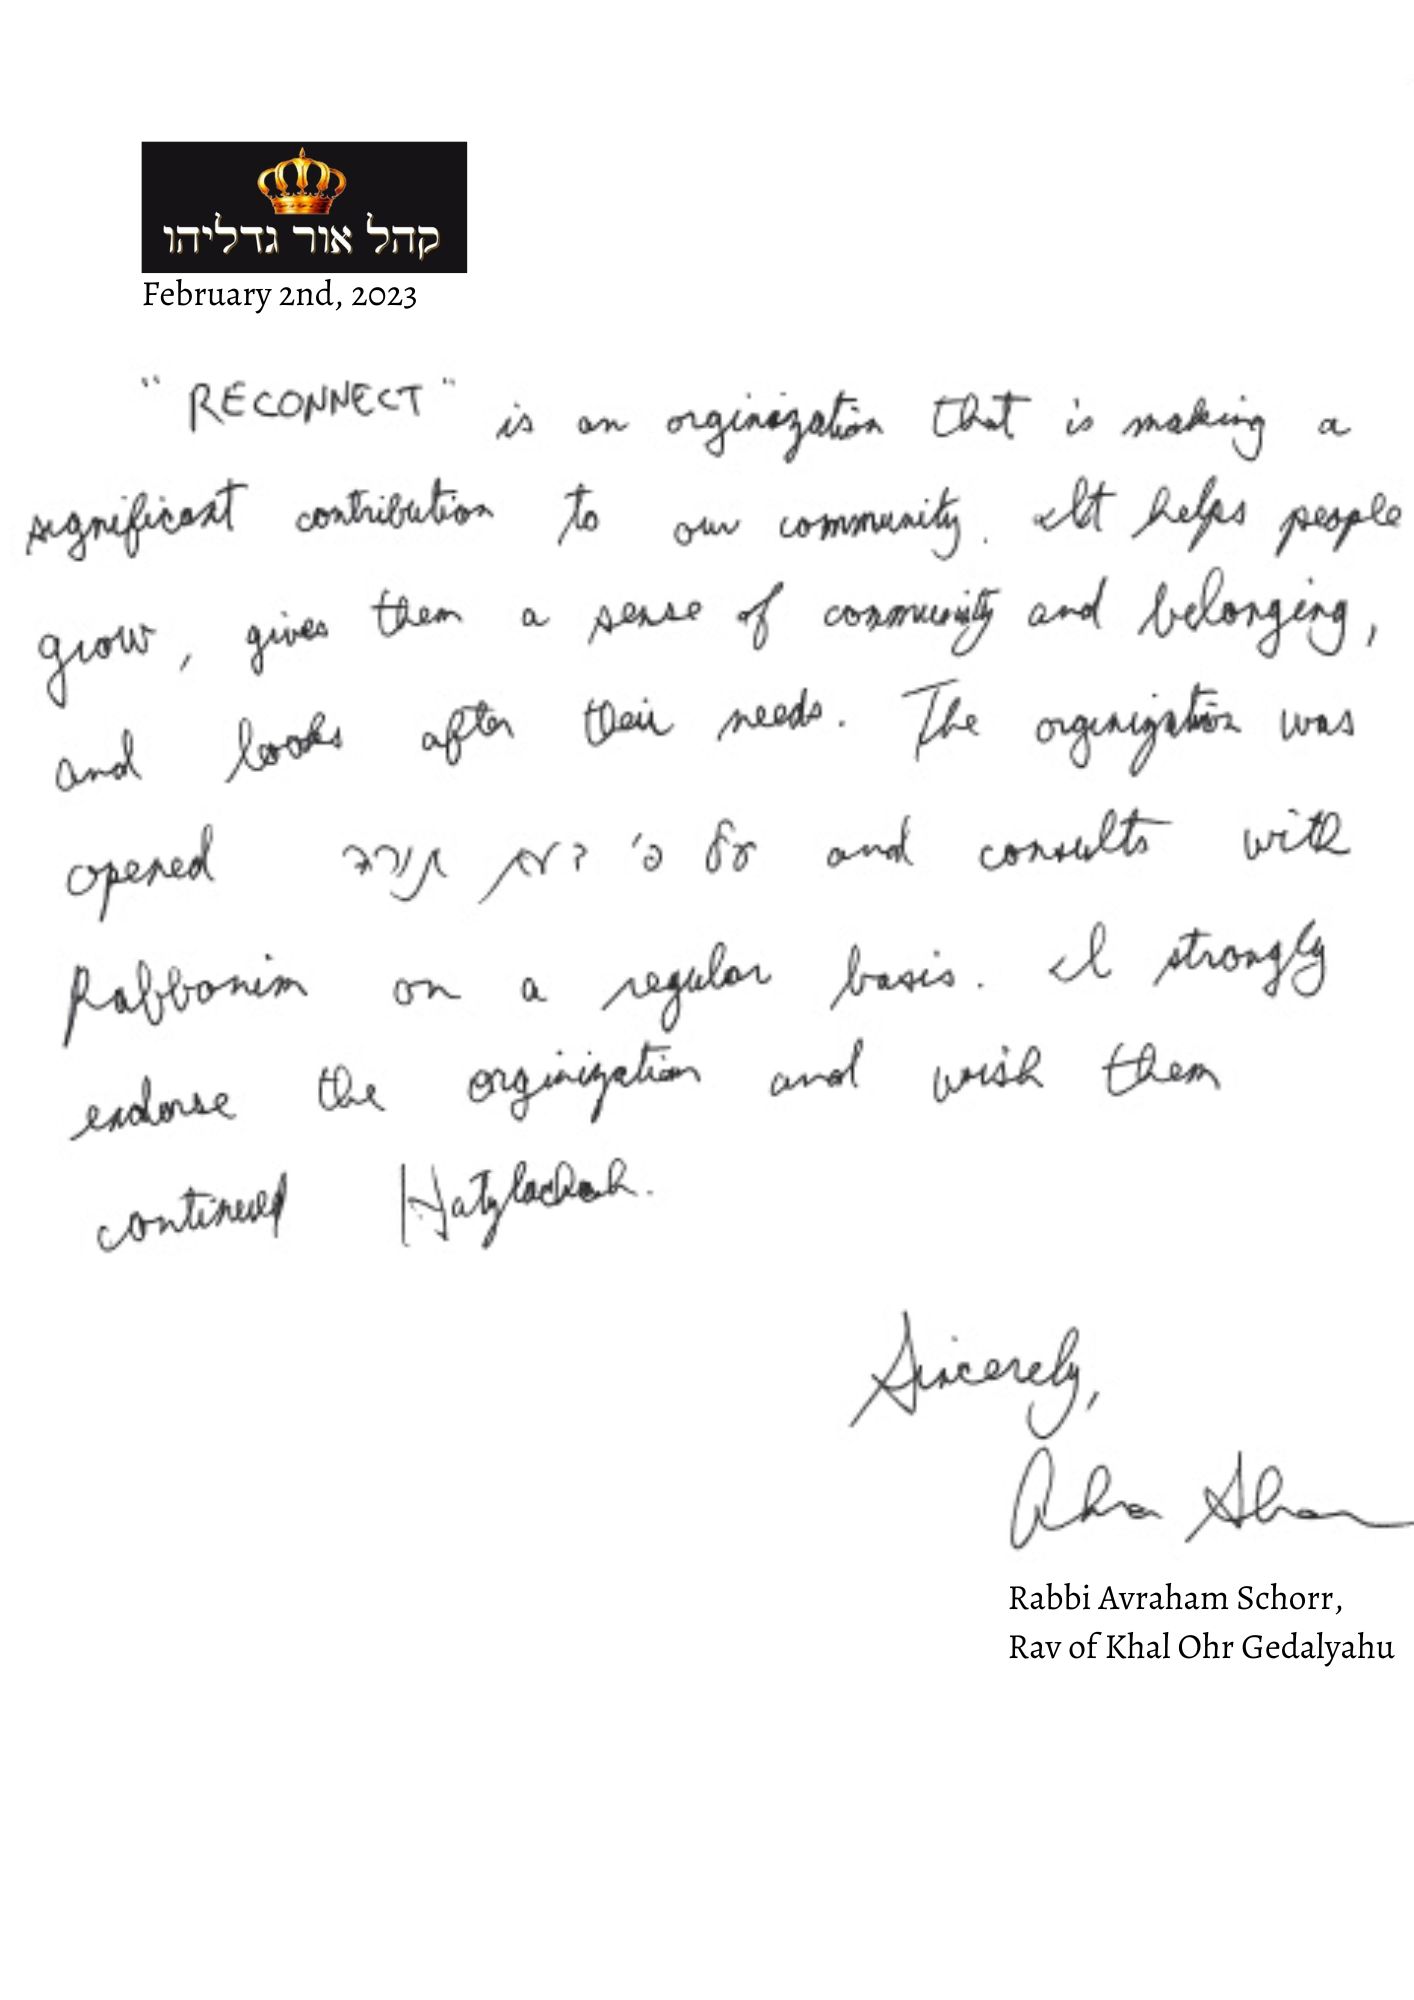 קהל אור גדליהו
February 2nd, 2023
"RECONNECT" is an orginization that is making a
significant contribution to our community. It helps people
grow, gives them a sense of community and belonging,
and looks after their needs. The orginization was
opened על פי דעת תורה and consults with
Rabbonim on a regular basis. I strongly
endorse the orginization and wish them
continued Hatzlachah.
Sincerely,
Rabbi Avraham Schorr,
Rav of Khal Ohr Gedalyahu